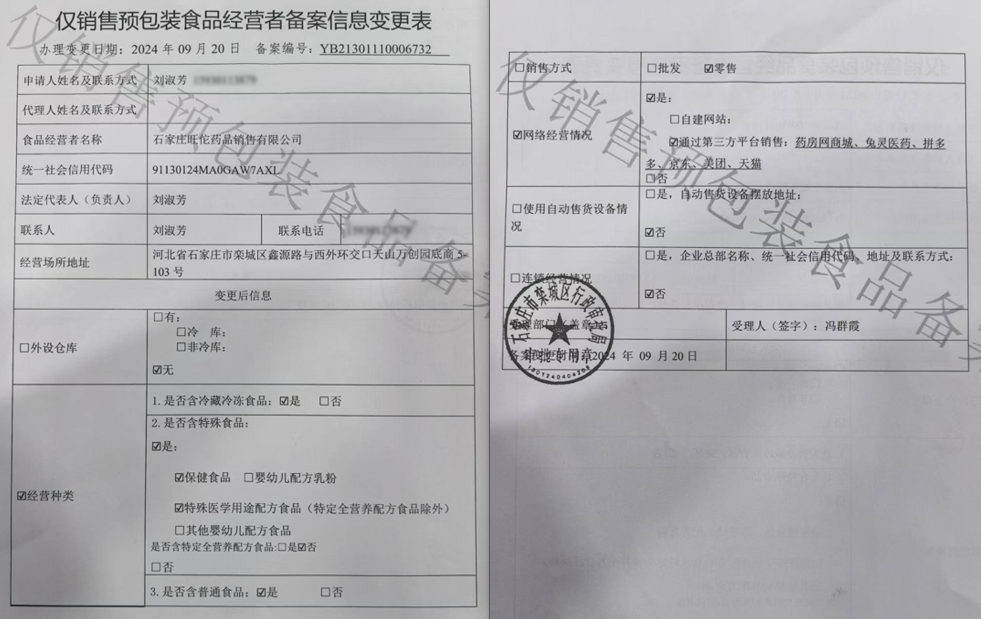 仅销售预包装食品经营者备案信息变更表
办理变更日期：2024 年 09 月 20 日 备案编号：YB21301110006732
申请人姓名及联系方式 刘淑芳
代理人姓名及联系方式
食品经营者名称 石家庄旺佗药品销售有限公司
统一社会信用代码 91130124MA0GAW7AXL
法定代表人（负责人） 刘淑芳
联系人 刘淑芳 联系电话
经营场所地址 河北省石家庄市栾城区鑫源路与西外环交口天山万创园底商 5-
103 号
变更后信息
☐外设仓库
☐有：
☐冷 库：
☐非冷库：
☑无
☑经营种类
1. 是否含冷藏冷冻食品：☑是 ☐否
2. 是否含特殊食品：
☑是：
☑保健食品 ☐婴幼儿配方乳粉
☑特殊医学用途配方食品（特定全营养配方食品除外）
☐其他婴幼儿配方食品
是否含特定全营养配方食品:☐是☑否
☐否
3. 是否含普通食品：☑是 ☐否
仅销售预包装食品备案
☐销售方式 ☐批发 ☑零售
☑网络经营情况
☑是：
☐自建网站：
☑通过第三方平台销售：药房网商城、兔灵医药、拼多
多、京东、美团、天猫
☐否
☐使用自动售货设备情
况
☐是，自动售货设备摆放地址：
☑否
☐连锁经营情况
☐是，企业总部名称、统一社会信用代码、地址及联系方式：
☑否
受理部门（盖章） 受理人（签字）：冯群霞
2024 年 09 月 20 日
石家庄市栾城区行政审批局
审批专用章
仅销售预包装食品备案